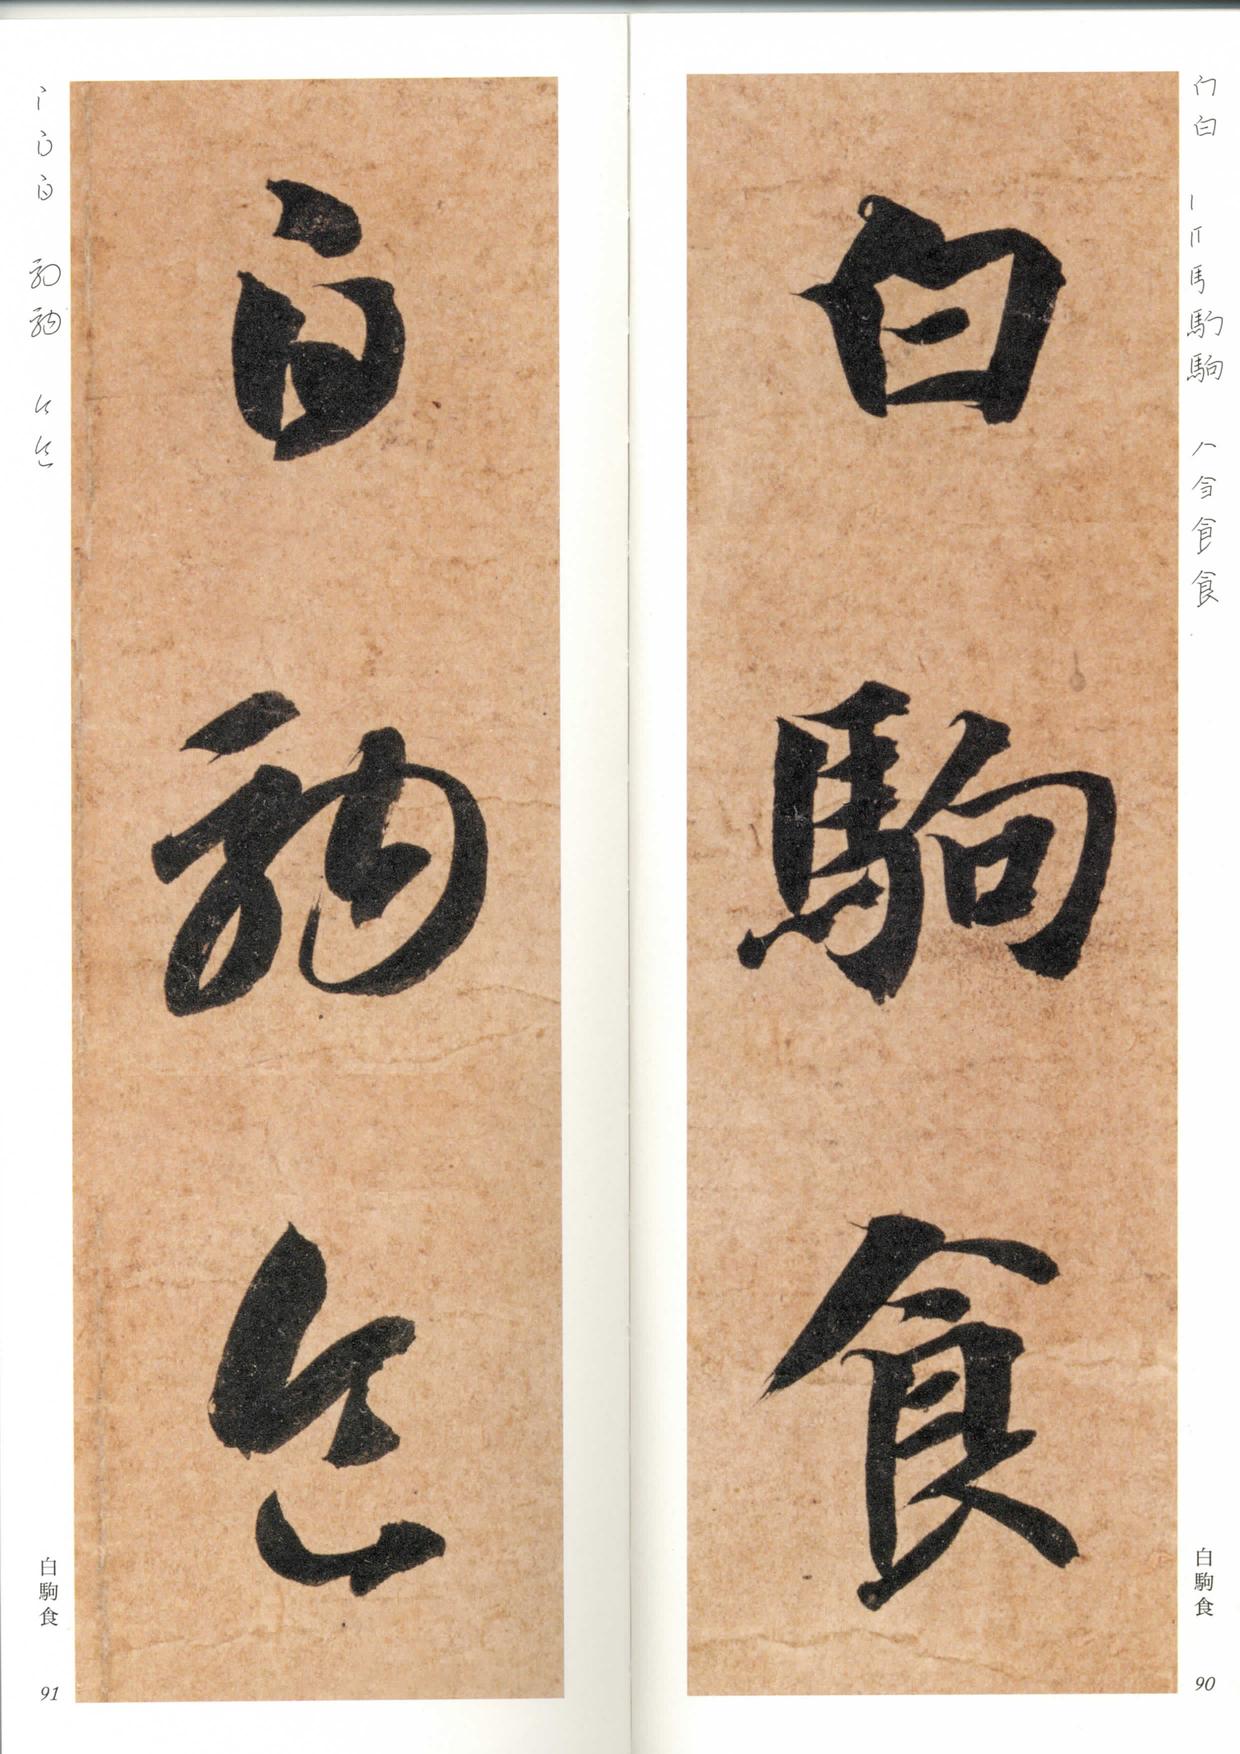 白駒食
白駒食
90
白駒食
白駒食
91